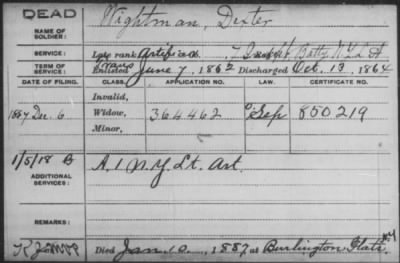 DEAD
Wightman, Dexter
NAME OF
SOLDIER:
SERVICE:
Late rank Artificer, Batty N Y L A
TERM OF
SERVICE:
Enlisted June 7, 1862 Discharged Oct. 13, 1864
DATE OF FILING.
CLASS.
APPLICATION NO.
LAW.
CERTIFICATE NO.
Invalid,
1887 Dec. 6
Widow,
364462
850219
Minor,
1/5/18 B
A. 1 N.Y. Lt. Art.
ADDITIONAL
SERVICES:
REMARKS:
Died Jan. 10, 1887, at Burlington Flats NY